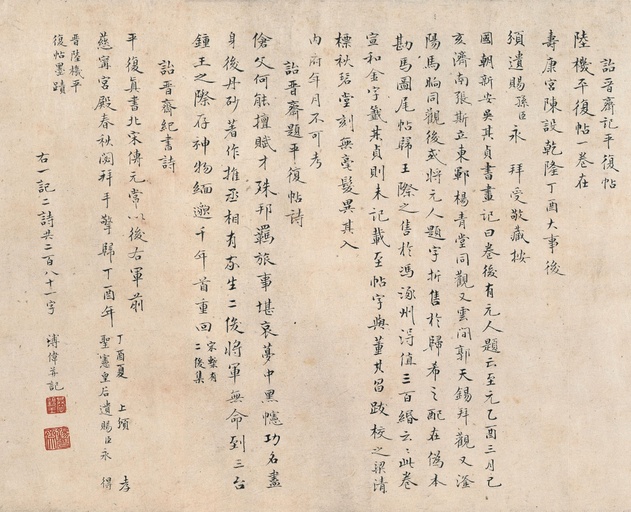 詒晉齋記平復帖
陸機平復帖一卷在
壽康宮陳設乾隆丁酉大事後
頒遺賜孫臣永 拜受敬藏按
國朝新安吳其貞書畫記曰卷後有元人題云至元乙酉三月己
亥濟南張斯立東鄆楊青堂同觀又雲間郭天錫拜觀又滏
陽馬昫同觀後或將元人題字折售於歸希之配在偽本
勘馬圖尾帖歸王際之售於馮涿州得值三百緡云云此卷
宣和金字籤其貞則未記載至帖字與董其昌跋校之梁清
標秋碧堂刻無毫髮異其入
內府年月不可考
詒晉齋題平復帖詩
傖父何能擅賦才 殊邦羈旅事堪哀 夢中黑幰功名盡
身後丹砂著作推 丞相有孫生二俊 將軍無命到三台
鍾王之際存神物 緬邈千年首重回 宋槧有二俊集
詒晉齋紀書詩
平復真書北宋傳 元常以後右軍前
慈寧宮殿春秋閱 拜手擎歸丁酉年 丁酉夏 上頒 孝聖憲皇后遺賜臣永 得
晉陸機平復帖墨蹟
右一記二詩共二百八十一字 溥偉并記